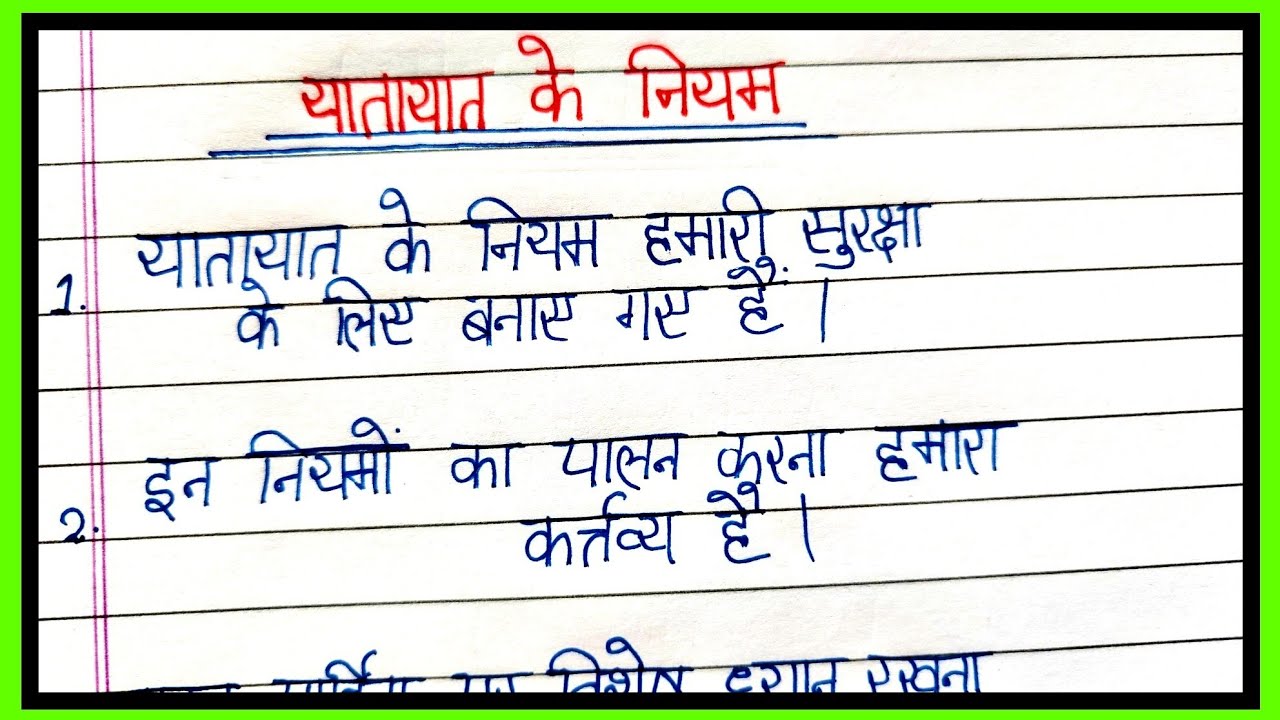 यातायात के नियम
1. यातायात के नियम हमारी सुरक्षा
के लिए बनाए गए हैं।
2. इन नियमों का पालन करना हमारा
कर्त्तव्य है।
पर विशेष ध्यान रखना